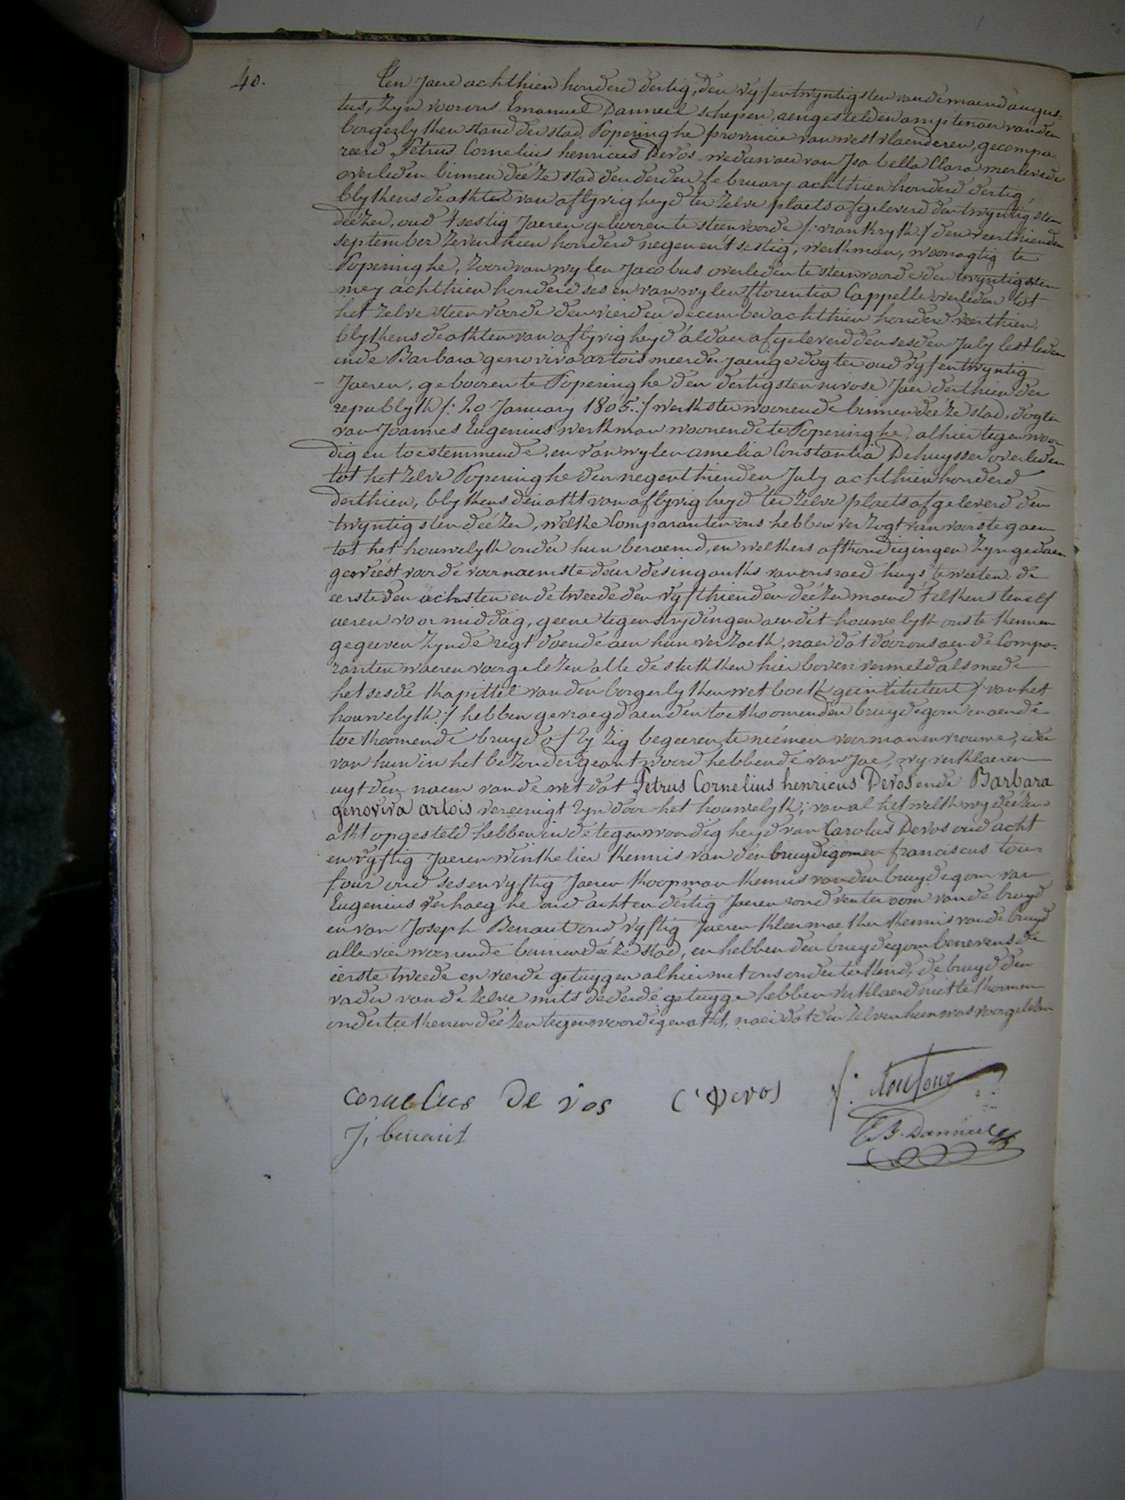 40.
Ten Jaere achthien honderd dertig, den vyfentwyntigsten van de maend augus-
tus, Zyn voor ons Emanuel Danneel schepen, aengestelden amptenaer van den
borgerlyken stand der stad Poperinghe provincie van westvlaenderen, gecompa-
reerd Petrus Cornelius henricus Devos weduwaer van Isabella Clara merlevede
overleden binnen deéze stad den derden february achthien honderd dertig,
blykens de akte van aflyvigheyd ter zelve plaets afgeleverd den twyntigsten
deézer, oud tsestig Jaeren geboren te steenvoorde /: vrankryk :/ den veerthienden
september zeventhien honderd negenentsestig, werkman, woonagtig te
Poperinghe, Zoon van wylen Jacobus overleden te steenvoorde den twyntigsten
mey achthien honderd ses en van wylen florentia Cappelle overleden tot
het zelve steenvoorde den vierden december achthien honderd veerthien,
blykens de akten van aflyvigheyd aldaer afgeleverd den sesden July lestleden
ende Barbara genoviva artois meerderjaerige dogter oud vyfentwyntig
Jaeren, gebooren te Poperinghe den dertigsten nivose Jaer derthien der
republyk /: 20 January 1805 :/ werkster woonende binnen deéze stad, dogter
van Joannes Eugenius werkman woonende te Poperinghe, alhier tegenwoor-
dig en toestemmende, en van wylen amelia Constantia Dehuysser overleden
tot het zelve Poperinghe den negenthienden July achthien honderd
derthien, blykens de akt van aflyvigheyd ter zelve plaets afgeleverd den
twyntigsten deézer, welke Comparanten ons hebben verzogt van voorts te gaen
tot het houwelyk onder hun beraemd, en welkers afkondigingen zyn gedaen
geweest voor de voornaemste deur des ingangs van ons raedhuys te weten: de
eerste den achsten en de tweede den vyfthienden deézer maend telkens ten elf
uren voormiddag, geene tegenstrydingen aen dit houwelyk ons te kennen
gegeeven zynde regt doende aen hun verzoek, naer dat door ons aen de Compa-
ranten waeren voorgelezen alle de stukken hier boven vermeld als mede
het sesde kapittel van den borgerlyken wetboek geintituleert /: van het
houwelyk :/ hebben gevraegd aen den toekoomenden bruydegom en aen de
toekoomende bruyd of zy zig begeeren te neémen voor man en vrouwe, ider
van hun in het bezonder geantwoord hebbende van Jae, wy verklaeren
uyt den naem van de wet dat Petrus Cornelius henricus Devos ende Barbara
genoviva artois vereenigt zyn door het houwelyk; van al het welk wy deézen
akt opgesteld hebben in de tegenwoordigheyd van Carolus Devos oud acht
en vyftig Jaeren winkelier kennis van den bruydegom en franciscus tou-
four oud ses en vyftig Jaeren koopman kennis van den bruydegom van
Eugenius verhaeghe oud acht en dertig Jaeren oom van de bruyd
en van Joseph Benaut oud vyftig Jaeren kleermaeker kennis van de bruyd
alle vier woonende binnen deéze stad, en hebben den bruydegom benevens de
eerste tweede en vierde getuygen alhier met ons onderteekend, de bruyd den
vader van de zelve mits de derde getuyge hebben verklaerd niet te konnen
onderteekenen deézen tegenwoordigen akt, naer dat den zelven hun was voorgelezen
Cornelius De vos C Devos f: toufour
J, benaut E J. Danneel